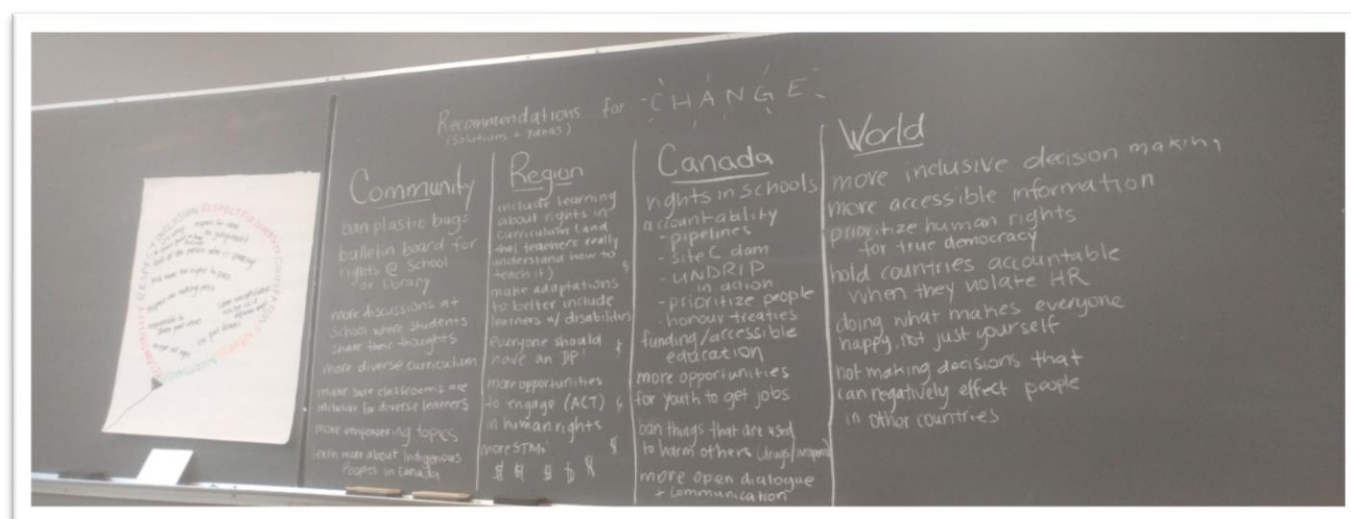 Recommendations for CHANGE
(Solutions + Ideas)
Community
ban plastic bags
bulletin board for
rights @ School
or Library
more discussions at
School where students
share their thoughts
more diverse curriculum
make sure classrooms are
inclusive for diverse learners
more empowering topics
learn more about Indigenous
Peoples in Canada
Region
include learning
about rights in
curriculum (and
that teachers really
understand how to
teach it) $
make adaptations
to better include
learners w/ disabilities
Everyone should $
have an IPP
more opportunities
to engage (ACT) $
in human rights
more STMs $
$ $ $ $ $
Canada
rights in schools
accountability
- pipelines
- site C dam
- UNDRIP
in action
- prioritize people
- honour treaties
funding/accessible
education
more opportunities
for youth to get jobs
ban things that are used
to harm others (drugs/weapons)
more open dialogue
+ communication
World
more inclusive decision making
more accessible information
prioritize human rights
for true democracy
hold countries accountable
when they violate HR
doing what makes everyone
happy, not just yourself
not making decisions that
can negatively effect people
in other countries